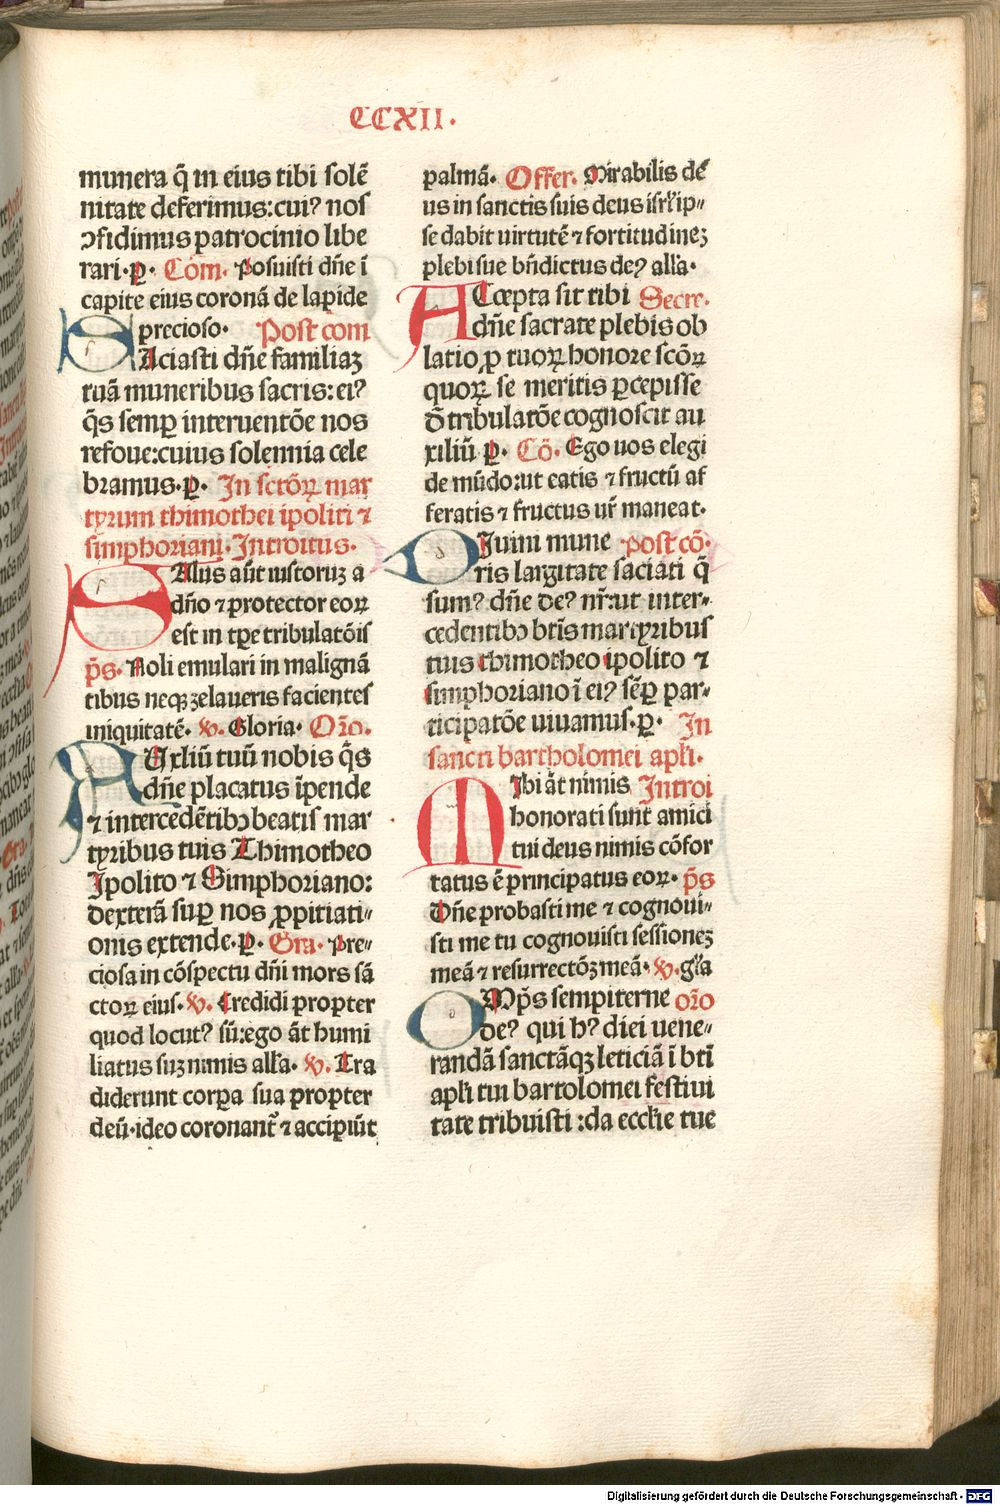 CCXII.
munera q̄ in eius tibi solē
nitate deferimus:cuiꝰ nos
ꝯfidimus patrocinio libe
rari.ꝑ. Cōm. Posuisti dn̄e ī
capite eius coronā de lapide
precioso. Post com
SAciasti dn̄e familiaꝫ
tuā muneribus sacris:eiꝰ
q̄s semꝑ interuentōe nos
refoue:cuius solennia cele
bramus.ꝑ. In sctōꝝ mar
tyrum thimothei ipoliti ⁊
simphoriani. Introitus.
SAlus aūt iustoruꝫ a
dn̄o ⁊ protector eoꝝ
est in tꝑe tribulatōis
p̄s. Noli emulari in malignā
tibus neqꝫ zelaueris facientes
iniquitatē. ℣. Gloria. Or̄o.
AUxliū tuū nobis q̄s
dn̄e placatus īpende
⁊ intercedētibꝫ beatis mar
tyribus tuis Thimotheo
Ipolito ⁊ Simphoriano:
dexterā suꝑ nos ꝓpitiati⸗
onis extende.ꝑ. Gra. Pre⸗
ciosa in cōspectu dn̄i mors sā
ctoꝝ eius. ℣. Credidi propter
quod locutꝰ sū:ego āt humi
liatus suꝫ nimis all̄a. ℣. Tra
diderunt corꝑa sua propter
deū.ideo coronant᷑ ⁊ accipiūt
palmā. Offer. Mirabilis dē
us in sanctis suis deus isrl̄ ip⸗
se dabit uirtutē ⁊ fortitudineꝫ
plebi sue bn̄dictus deꝰ all̄a.
ACcepta sit tibi Secre.
dn̄e sacrate plebis ob
latio ꝓ tuoꝝ honore scōꝝ
quoꝝ se meritis ꝑcepisse
d̄ tribulatōe cognoscit au
xiliū ꝑ. Cō. Ego uos elegi
de mūdo:ut eatis ⁊ fructū af
feratis ⁊ fructus ur̄ maneat.
DIuini mune post cō.
ris largitate saciati q̄
sumꝰ dn̄e deꝰ nr̄:ut inter⸗
cedentibꝫ btīs martyribus
tuis thimotheo ipolito ⁊
simphoriano ī eiꝰ sēꝑ par⸗
ticipatōe uiuamus.ꝑ. In
sancti bartholomei apl̄i.
MIhi āt nimis Introi
honorati sunt amici
tui deus nimis cōfor
tatus ē principatus eoꝝ. p̄s
Dn̄e probasti me ⁊ cognoui⸗
sti me tu cognouisti sessioneꝫ
meā ⁊ resurrectōꝫ meā. ℣. gl̄a
OMp̄s sempiterne or̄o
deꝰ qui hꝰ diei uene⸗
randā sanctāqꝫ leticiā ī btī
apl̄i tui bartolomei festiui
tate tribuisti :da eccl̄ie tue
Digitalisierung gefördert durch die Deutsche Forschungsgemeinschaft - DFG